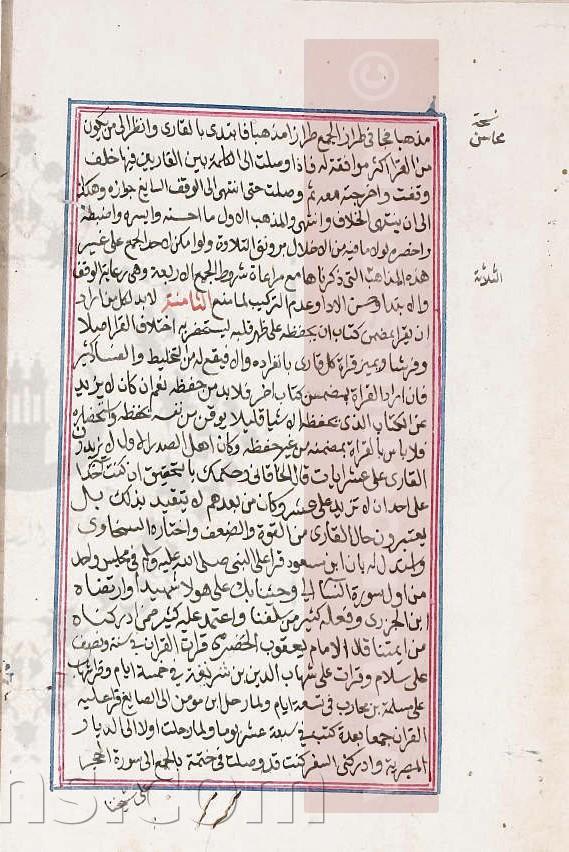 مذهبا مجا في طراز الجمع طرازا مذهبا فابتدى بالقارى وانظر الى من يكون
من القرا اكثر موافقة له فاذا وصلت الى الكلمة بين القاريين فيها خلف
وقفت واخرجته معه ثم وصلت حتى انتهى الى الوقف السايغ جوازه وهكذا
الى ان ينتهى الخلاف وانتهى والمذهب الاول ما احسنه وايسره واضبطه
واخصره لولا ما فيه من الاخلال برونق التلاوة ولو امكن لاحد الجمع على غير
هذه المذاهب التى ذكرناها مع مراعاة شروط الجمع الاربعة وهى رعاية الوقف
والابتدا وحسن الادا وعدم التركيب لما منع الثامنة لابد لكل من اراد
ان يقرا بمضمن كتاب ان يحفظه على ظهر قلبه ليستحضر به اختلاف القرا اصلا
وفرشا ويميز قراة كل قارى بانفراده والا فيقع له من التخليط والفساد كثير
فان اراد القراة بمضمن كتاب اخر فلا بد من حفظه نعم ان كان لا يزيد
عن الكتاب الذى يحفظه الا شيا قليلا يوقن من نفسه بحفظه واستحضاره
فلا باس بالقراة بمضمنه من غير حفظه وكان اهل الصدر الاول لا يزيدون
القارى على عشر ايات قال الخاقانى وحكمك بالتحقيق ان كنت آخذا
على احد ان لا تزيد على عشر وكان من بعدهم لا يتقيد بذلك بل
يعتبرون حال القارى من القوة والضعف واختاره السخاوى
واستدل له بان ابن مسعود قرا على النبى صلى الله عليه وسلم فى مجلس واحد
من اول سورة النسا الى وجئنا بك على هولا شهيدا وارتضاه
ابن الجزرى وفعله كثير من سلفنا واعتمد عليه كثير ممن ادركناه
من ايمتنا قال الامام يعقوب الحضرمى قرات القران فى سنة ونصف
على سلام وقرات على شهاب الدين بن شريفة فى خمسة ايام وقرا شهاب
على مسلمة بن محارب فى تسعة ايام ولما رحل ابن مومن الى الصايغ قرا عليه
القران جمعا بعدة كتب فى سبعة عشر يوما ولما رحلت اولا الى الديار
المصرية وادركنى السفر كنت قد وصلت فى ختمة بالجمع الى سورة الحجر
على شيخنا
نسخة
محاسن
الثلاثة
ns.com